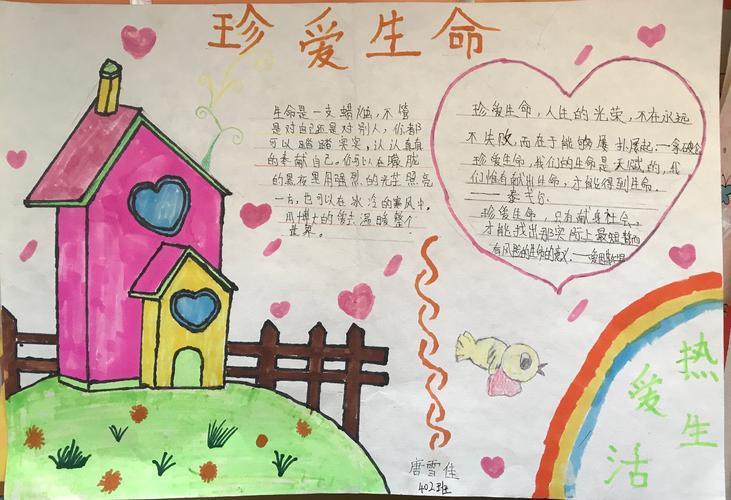 珍爱生命
生命是一支蜡烛,不管
是对自己还是对别人,你都
可以踏踏实实,认认真真
的奉献自己。你可以在朦胧
的黑夜里用强烈的光芒照亮
一方,也可以在冰冷的寒风中,
用博大的爱去温暖整个
世界。
珍爱生命,人生的光荣,不在永远
不失败,而在于能够屡扑屡起。——拿破仑
珍爱生命,我们的生命是天赋的,我
们惟有献出生命,才能得到生命。
泰戈尔
珍爱生命,只有献身社会,
才能找出那实际上最短暂而
有风险的生命的意义。——爱因斯坦
热爱生活
唐雪佳
402班